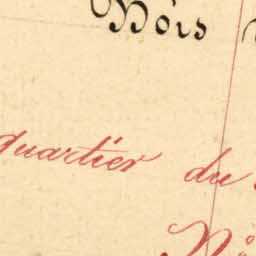 Bois
quartier du